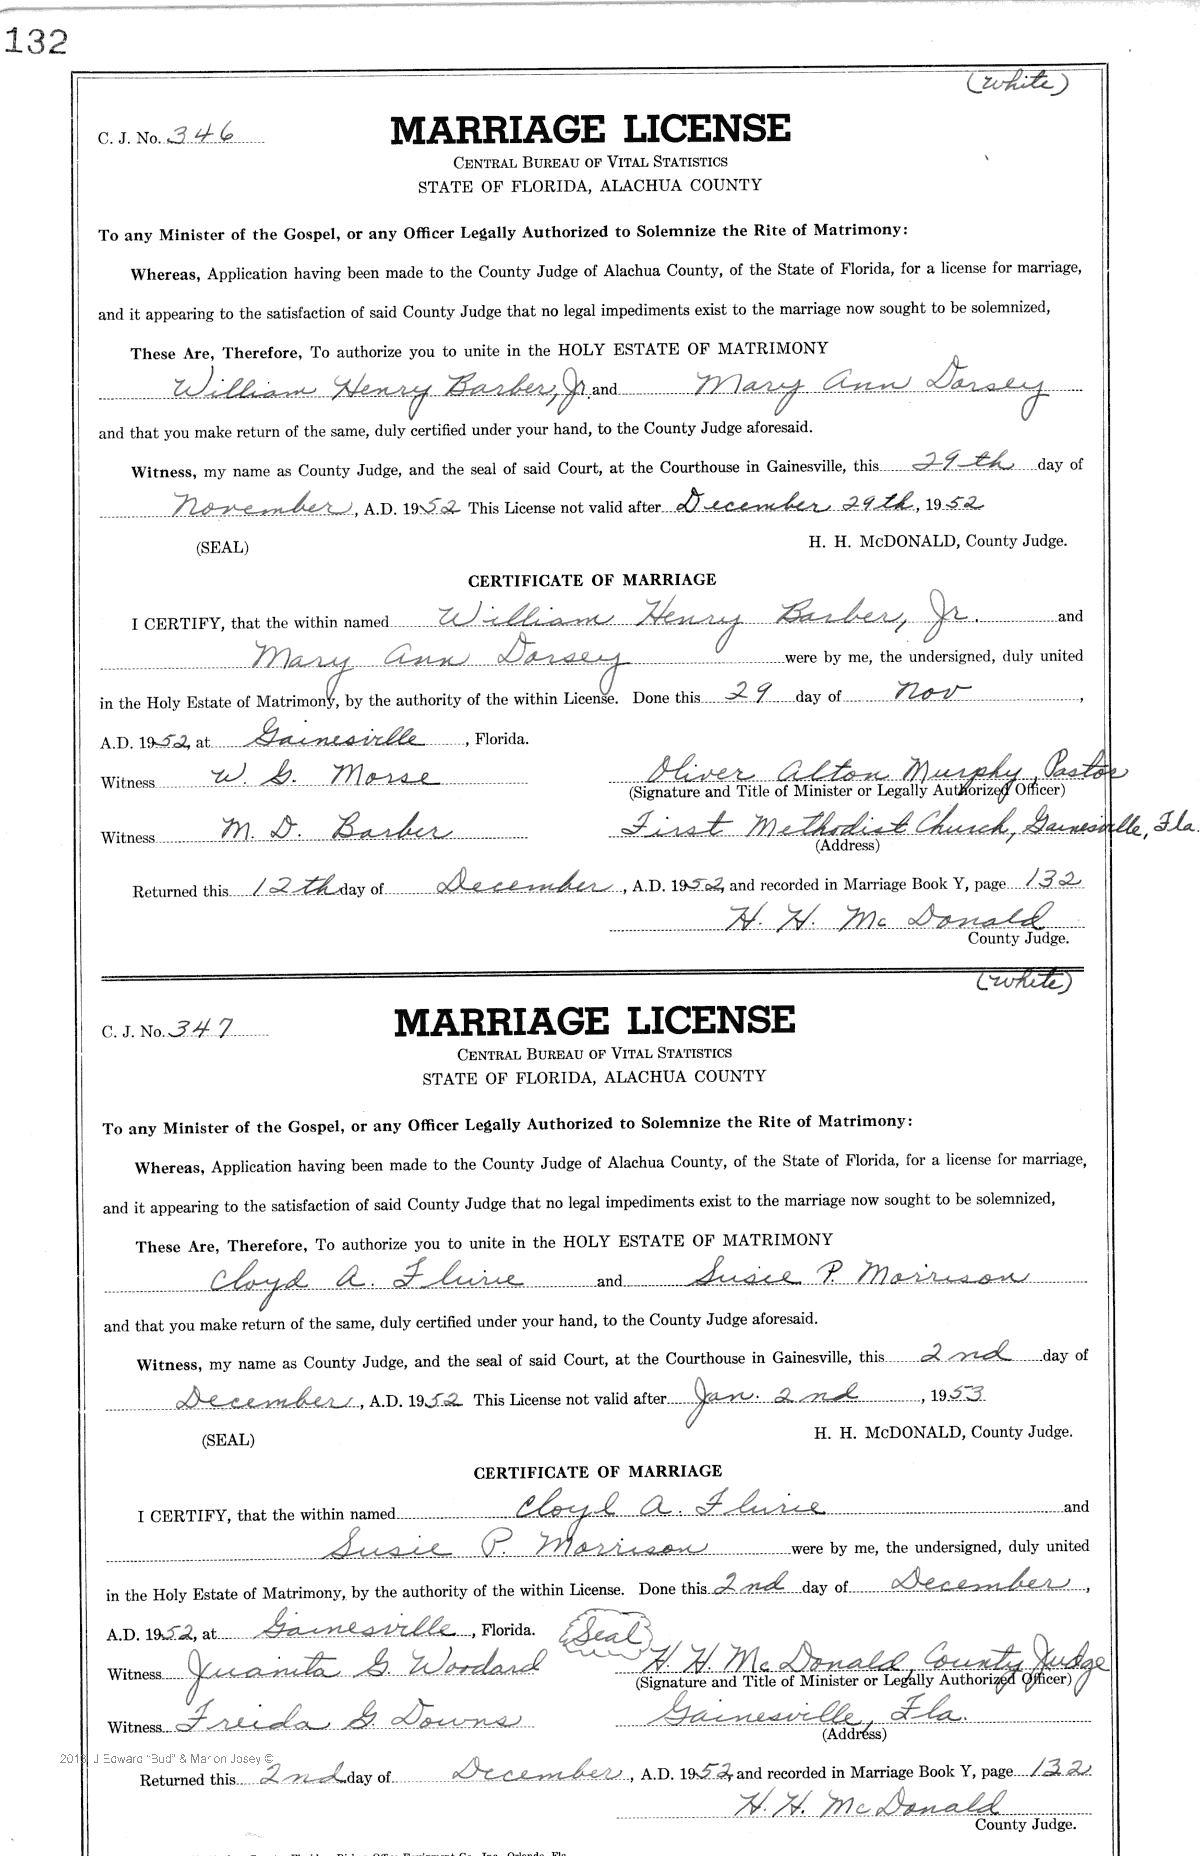 132
(White)
C. J. No. 346 MARRIAGE LICENSE
CENTRAL BUREAU OF VITAL STATISTICS
STATE OF FLORIDA, ALACHUA COUNTY
To any Minister of the Gospel, or any Officer Legally Authorized to Solemnize the Rite of Matrimony:
Whereas, Application having been made to the County Judge of Alachua County, of the State of Florida, for a license for marriage,
and it appearing to the satisfaction of said County Judge that no legal impediments exist to the marriage now sought to be solemnized,
These Are, Therefore, To authorize you to unite in the HOLY ESTATE OF MATRIMONY
William Henry Barber, Jr. and Mary Ann Dorsey
and that you make return of the same, duly certified under your hand, to the County Judge aforesaid.
Witness, my name as County Judge, and the seal of said Court, at the Courthouse in Gainesville, this 29th day of
November, A.D. 1952 This License not valid after December 29th, 1952
(SEAL) H. H. McDONALD, County Judge.
CERTIFICATE OF MARRIAGE
I CERTIFY, that the within named William Henry Barber, Jr. and
Mary Ann Dorsey were by me, the undersigned, duly united
in the Holy Estate of Matrimony, by the authority of the within License. Done this 29 day of Nov,
A.D. 1952, at Gainesville, Florida.
Witness W. G. Morse Oliver Alton Murphy, Pastor
(Signature and Title of Minister or Legally Authorized Officer)
Witness M. D. Barber First Methodist Church, Gainesville, Fla.
(Address)
Returned this 12th day of December, A.D. 1952, and recorded in Marriage Book Y, page 132
H. H. McDonald
County Judge.
(White)
C. J. No. 347 MARRIAGE LICENSE
CENTRAL BUREAU OF VITAL STATISTICS
STATE OF FLORIDA, ALACHUA COUNTY
To any Minister of the Gospel, or any Officer Legally Authorized to Solemnize the Rite of Matrimony:
Whereas, Application having been made to the County Judge of Alachua County, of the State of Florida, for a license for marriage,
and it appearing to the satisfaction of said County Judge that no legal impediments exist to the marriage now sought to be solemnized,
These Are, Therefore, To authorize you to unite in the HOLY ESTATE OF MATRIMONY
Cloyd A. Flurie and Susie P. Morrison
and that you make return of the same, duly certified under your hand, to the County Judge aforesaid.
Witness, my name as County Judge, and the seal of said Court, at the Courthouse in Gainesville, this 2nd day of
December, A.D. 1952 This License not valid after Jan. 2nd, 1953
(SEAL) H. H. McDONALD, County Judge.
CERTIFICATE OF MARRIAGE
I CERTIFY, that the within named Cloyl A. Flurie and
Susie P. Morrison were by me, the undersigned, duly united
in the Holy Estate of Matrimony, by the authority of the within License. Done this 2nd day of December,
A.D. 1952, at Gainesville, Florida. Seal
Witness Juanita G. Woodard H. H. McDonald, County Judge
(Signature and Title of Minister or Legally Authorized Officer)
Witness Freida G. Downs Gainesville, Fla.
(Address)
J Edward "Bud" & Marion Josey ©
Returned this 2nd day of December, A.D. 1952, and recorded in Marriage Book Y, page 132
H. H. McDonald
County Judge.